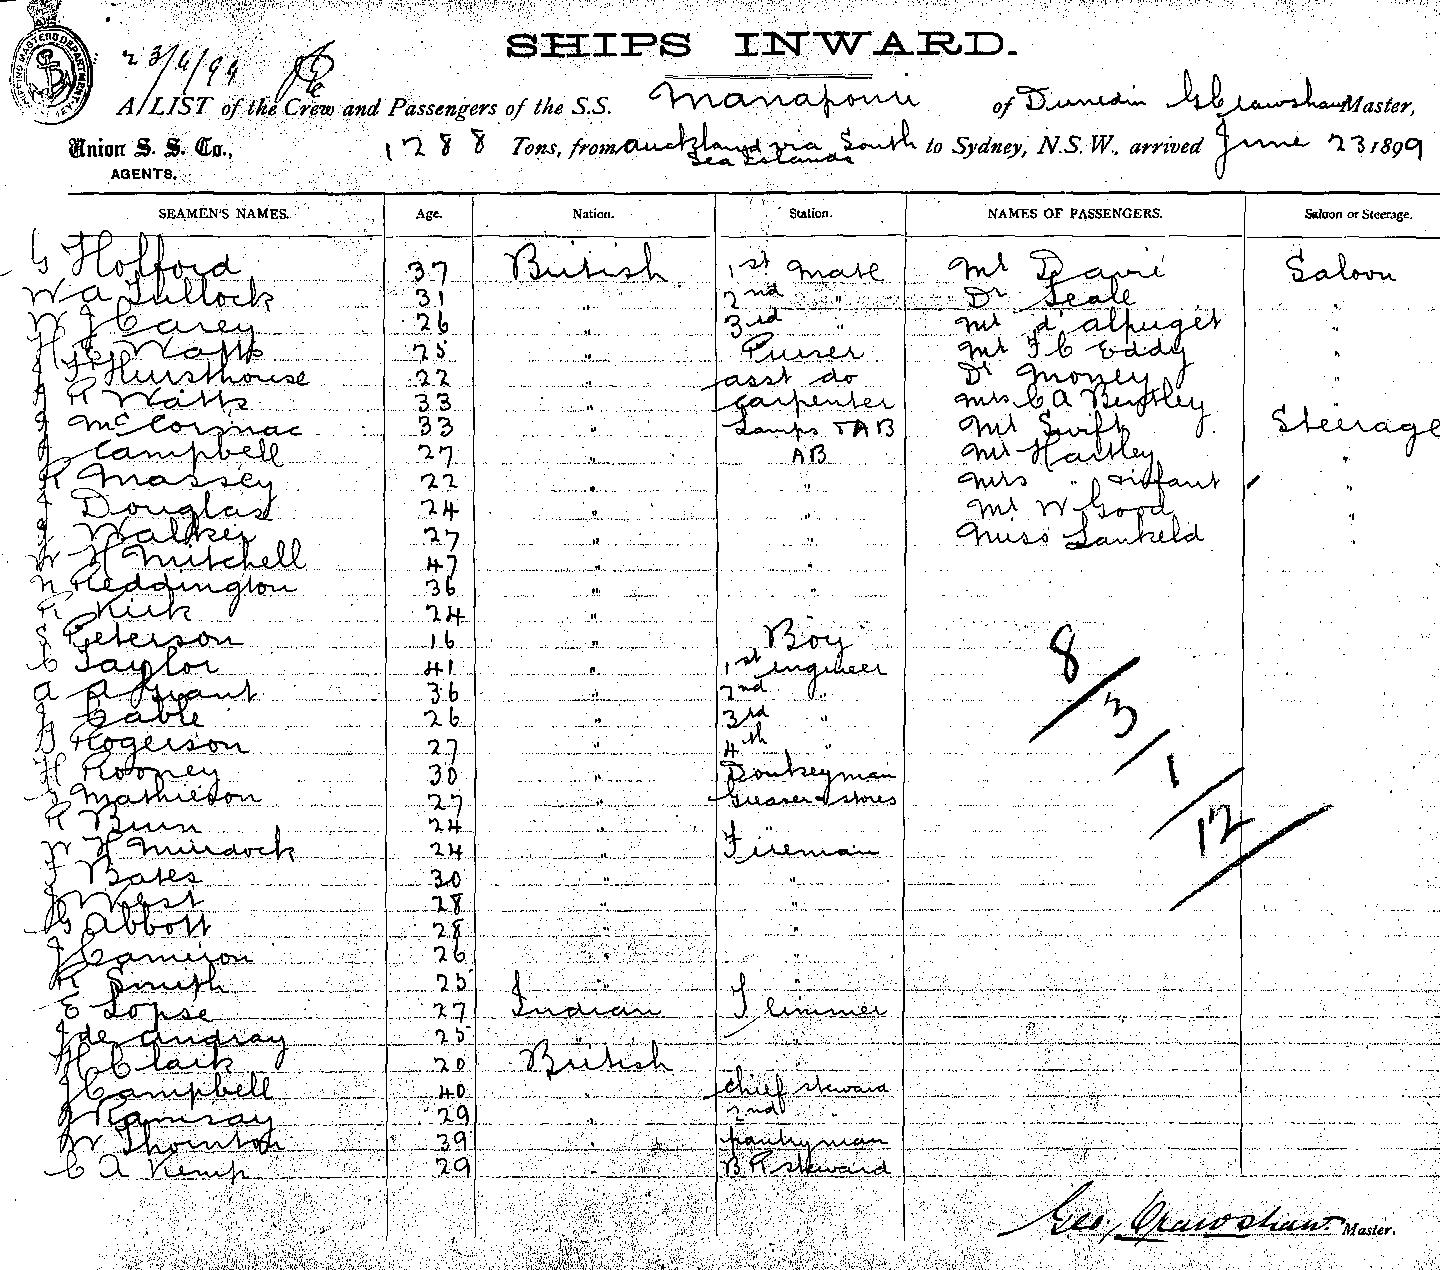 23/6/99
SHIPS INWARD.
A LIST of the Crew and Passengers of the S.S. Manapouri of Dunedin G Crawshaw Master,
Union S. S. Co., AGENTS. 1288 Tons, from Auckland via South Sea Islands to Sydney, N.S.W., arrived June 23 1899
SEAMEN'S NAMES. Age. Nation. Station. NAMES OF PASSENGERS. Saloon or Steerage.
G Holford 37 British 1st Mate Mr Davie Saloon
W A Tullock 31 " 2nd " Dr Seale "
W J Carey 26 " 3rd " Mr d'Alpuget "
Watts 25 " Purser Mr F C Eddy "
Hursthouse 22 " asst do Dr Money "
R Watts 33 " Carpenter Mrs C A Bentley
J McCormac 33 " Lamps & AB Mr Swift Steerage
J Campbell 27 " AB Mr Hartley "
R Massey 22 " " Mrs " & infant "
J Douglas 24 " " Mr W Good "
J Walker 27 " " Miss Lankeld "
W H Mitchell 47 " "
N Heddington 36 " "
R Kirk 24 "
S Peterson 16 " Boy
C Taylor 41 " 1st engineer
A A Grant 36 " 2nd "
J Cable 26 " 3rd "
G Rogerson 27 " 4th "
H Rooney 30 " Donkeyman
J Mathieson 27 " Greaser & stores
R Bunn 24 " "
W H Murdock 24 " Fireman
F Bates 30 " "
J West 28 " "
G Abbott 28 " "
J Cameron 26 " "
R Smith 25 " "
E Lopse 27 Indian Trimmer
J de Andray 25 " "
H Clark 20 British
J Campbell 40 " Chief steward
J Ramsay 29 " 2nd "
W Thornton 39 " pantryman
C A Kemp 29 " B R steward
8/
3/
1/
12/
Geo, Crawshaw Master.